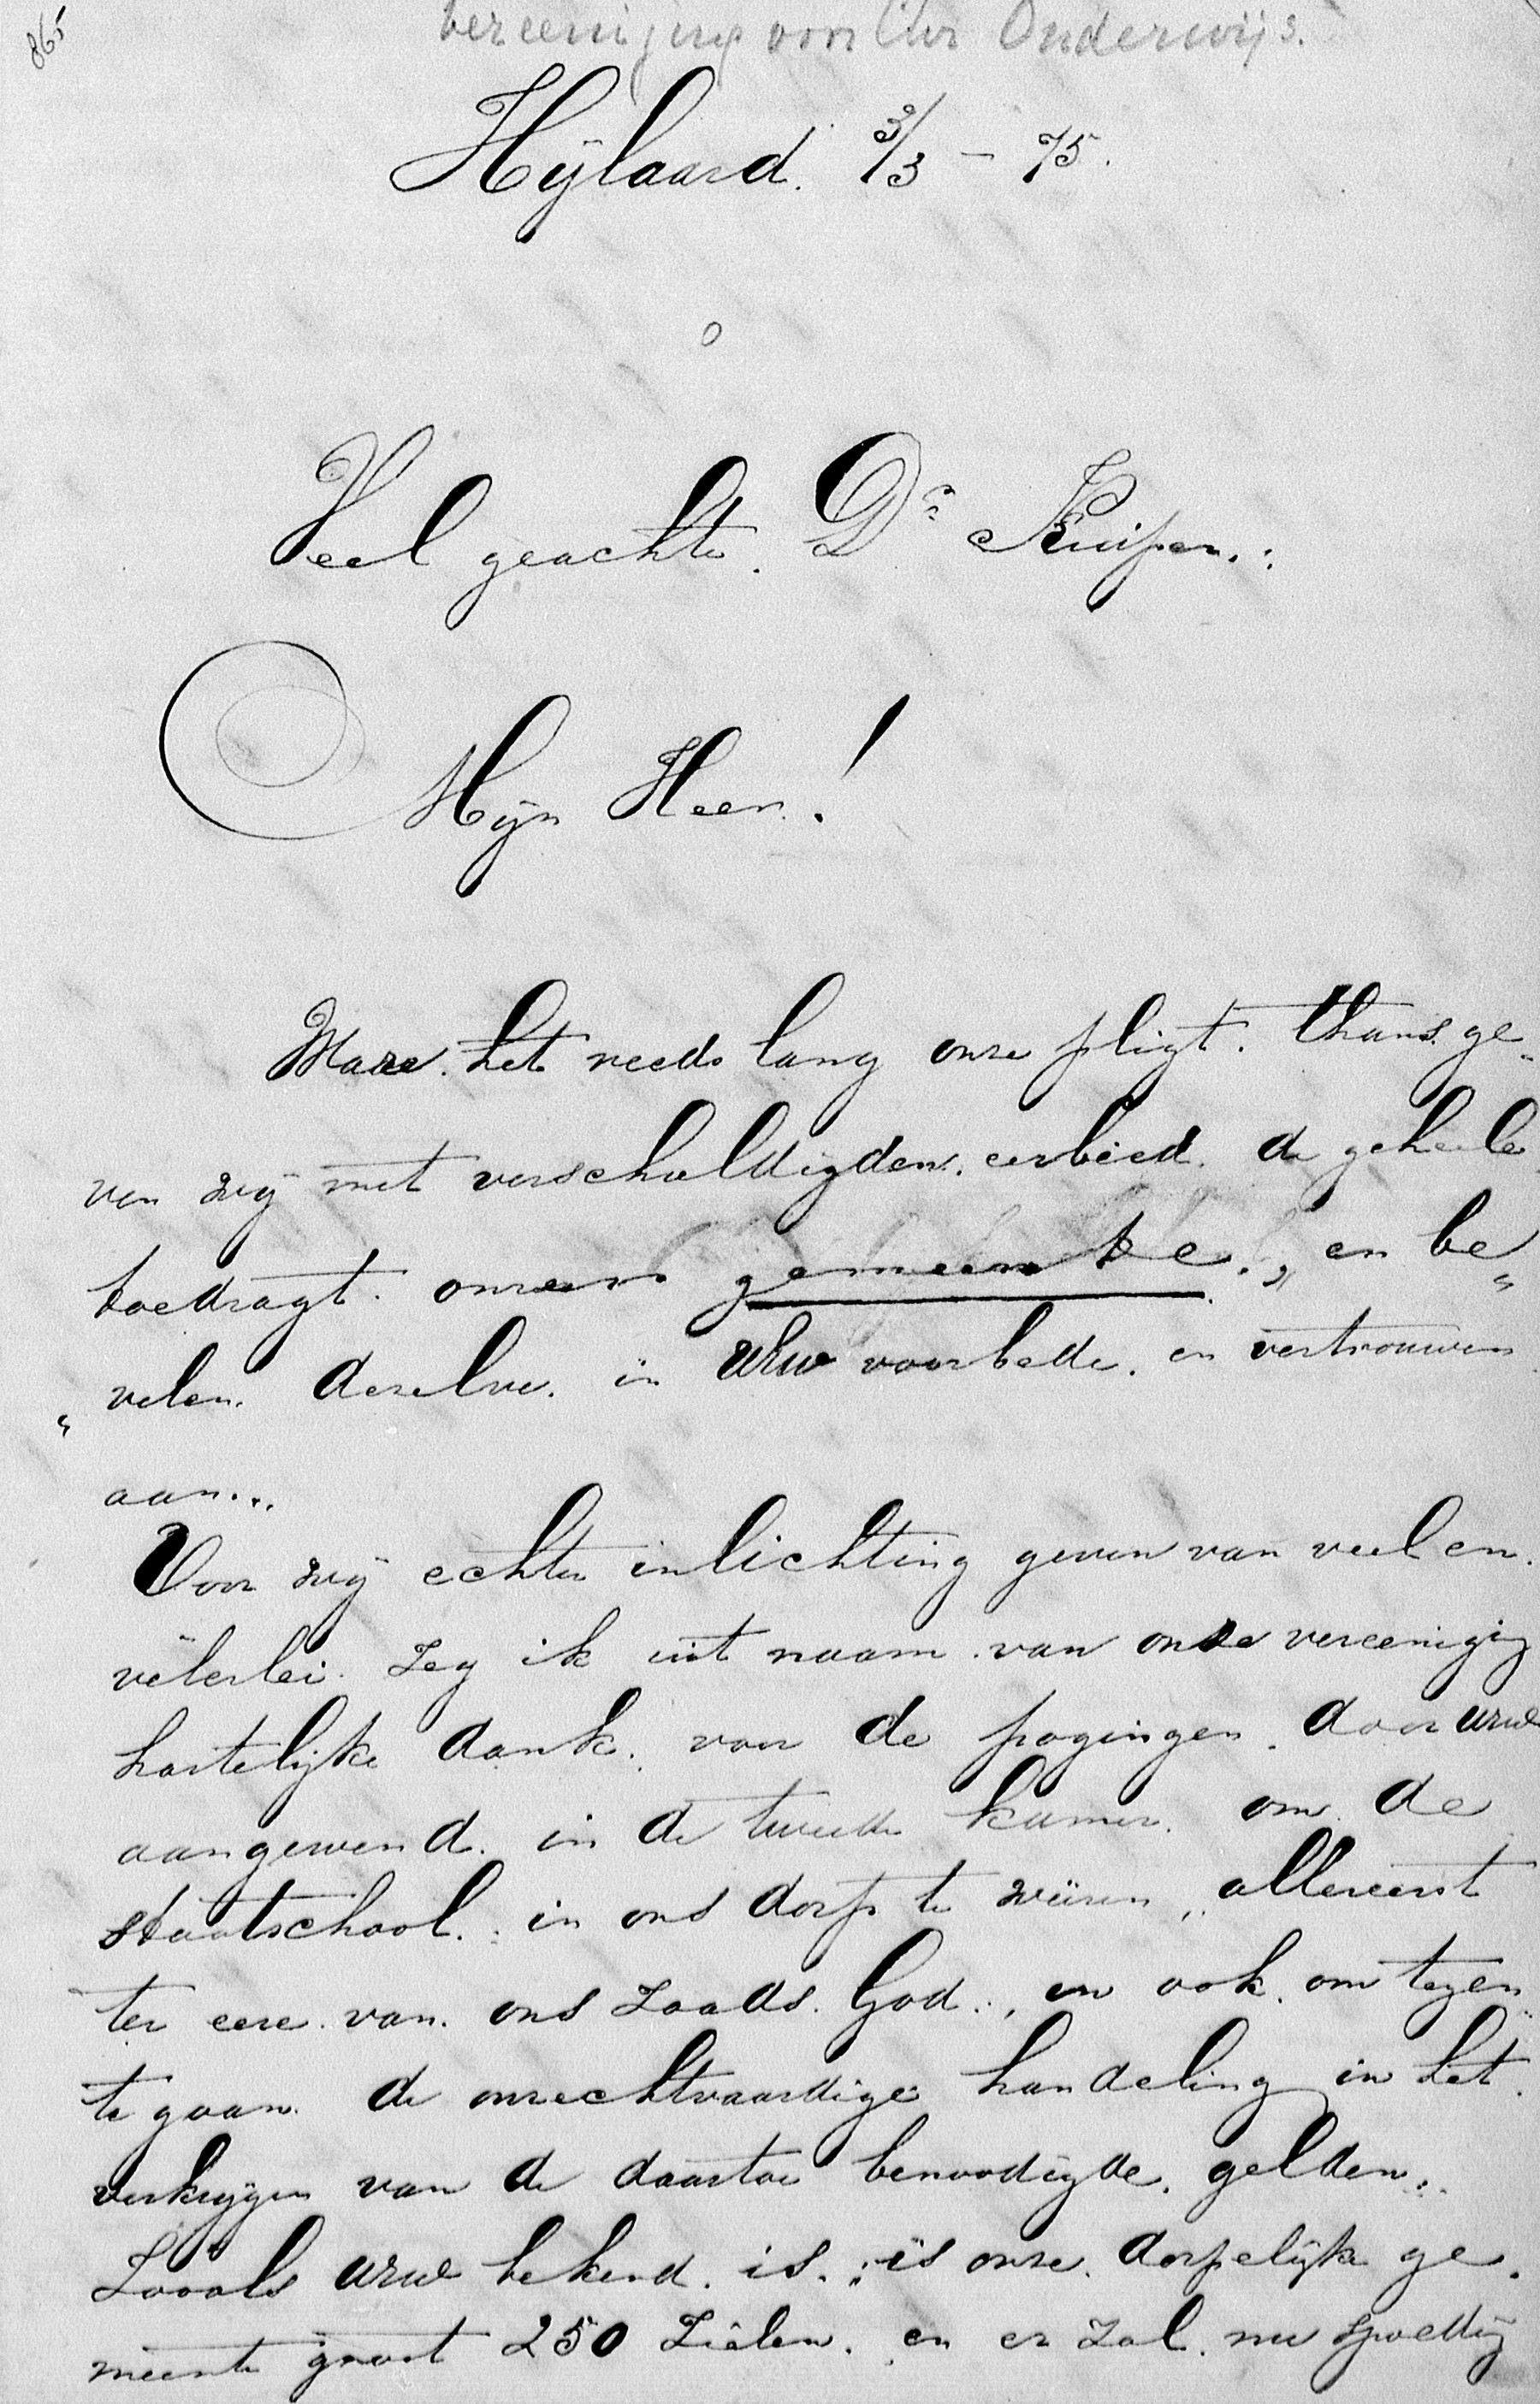 865
Vereeniging voor Chr Onderwijs.
Hijlaard. 3/3 - 75.
Veel geachte. Dr. Kuiper.:
Mijn Heer!
Ware. het reeds lang onze pligt. thans ge„
ven wij met verschuldigden. eerbied. de geheele
toedragt. onzer gemeente. „ en be„
„velen. dezelve. in UEw voorbede. en vertrouwen
aan...
Voor wij echter inlichting geven van veel en.
velerlei. Zeg ik uit naam. van onze vereenigig
hartelijke dank. voor de pogingen. door UEw
aangewend. in de tweede kamer. om de
staatschool. in ons dorp te weeren „ allereerst
ter eere. van. ons Zaads. God.., en ook. om tegen„
te gaan. de onrechtvaardige handeling in het.
verkrijgen van de daartoe benoodigde. gelden..
Zooals UEw bekend. is.: is onze. dorpelijke ge.
meente groot 250 Zielen. en er Zal. nu spoedig